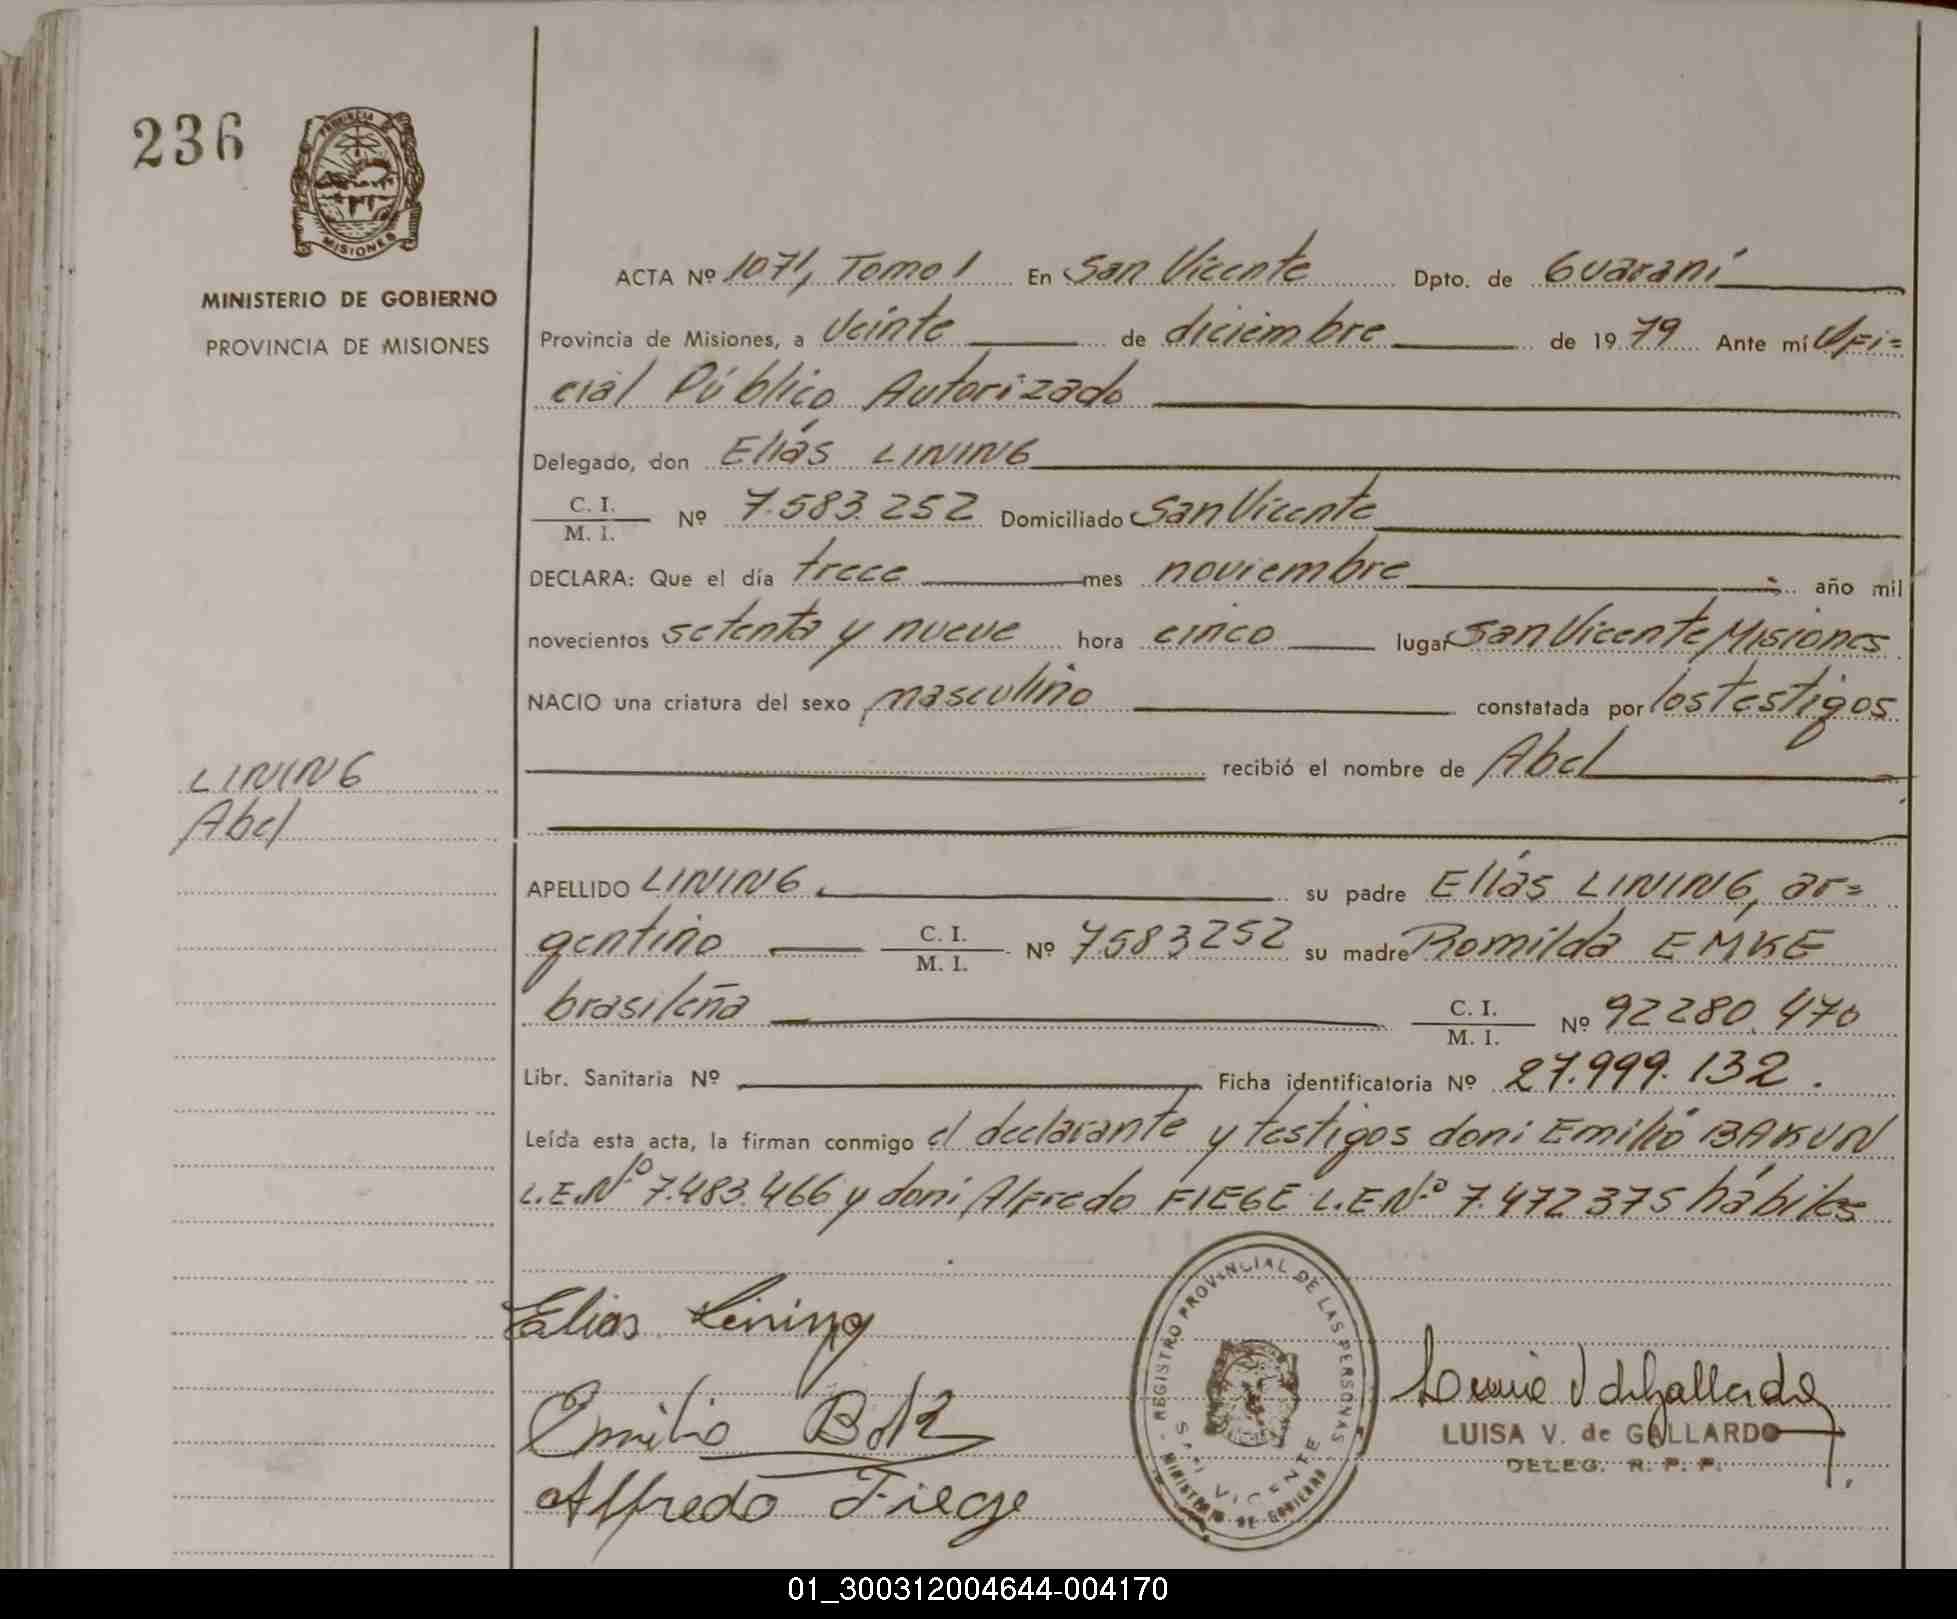 236
PROVINCIA DE
MISIONES
MINISTERIO DE GOBIERNO
PROVINCIA DE MISIONES
ACTA Nº 1071, Tomo I En San Vicente Dpto. de Guaraní
Provincia de Misiones, a veinte de diciembre de 1979 Ante mí Ofi=
cial Público Autorizado
Delegado, don Elías LINING
C. I.
M. I. Nº 7.583.252 Domiciliado San Vicente
DECLARA: Que el día trece mes noviembre año mil
novecientos setenta y nueve hora cinco lugar San Vicente, Misiones
NACIO una criatura del sexo masculino constatada por los testigos
recibió el nombre de Abel
LINING
Abel
APELLIDO LINING su padre Elías LINING, ar=
gentino C. I.
M. I. Nº 7583252 su madre Romilda EMKE
brasileña C. I.
M. I. Nº 92280.470
Libr. Sanitaria Nº Ficha identificatoria Nº 27.999.132.
Leída esta acta, la firman conmigo el declarante y testigos don: Emilio BAKUN
L.E.Nº 7.483.466 y don: Alfredo FIEGE L.E.Nº 7.472375 hábiles
Elias Lining
Emilio
Alfredo Fiege
REGISTRO PROVINCIAL DE LAS PERSONAS
SAN VICENTE
MINISTERIO DE GOBIERNO
Luisa V de Gallardo
LUISA V. de GALLARDO
DELEG. R. P. P.
01_300312004644-004170